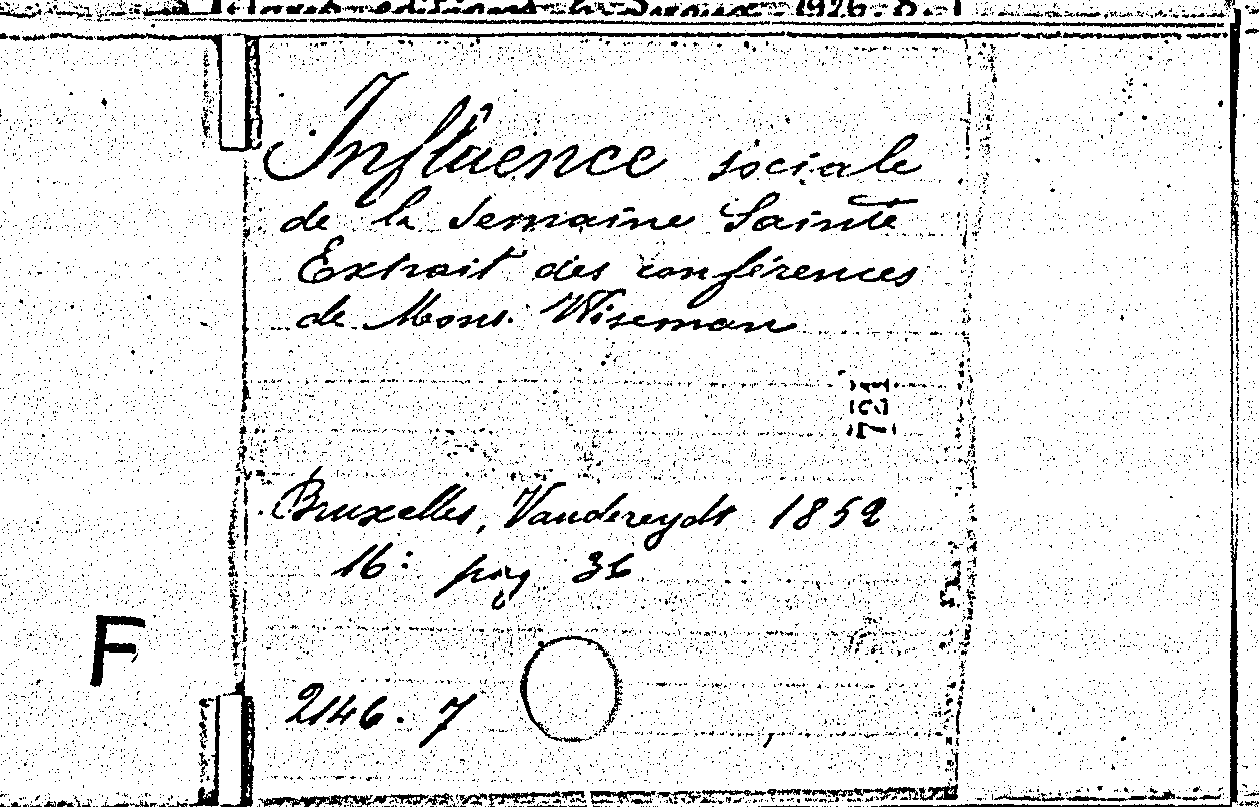 1926. 8.
Influence sociale
de la Semaine Sainte
Extrait des conférences
de Mons. Wiseman
721
Bruxelles, Vandereydt 1852
16: pag 36
F
2146. 7